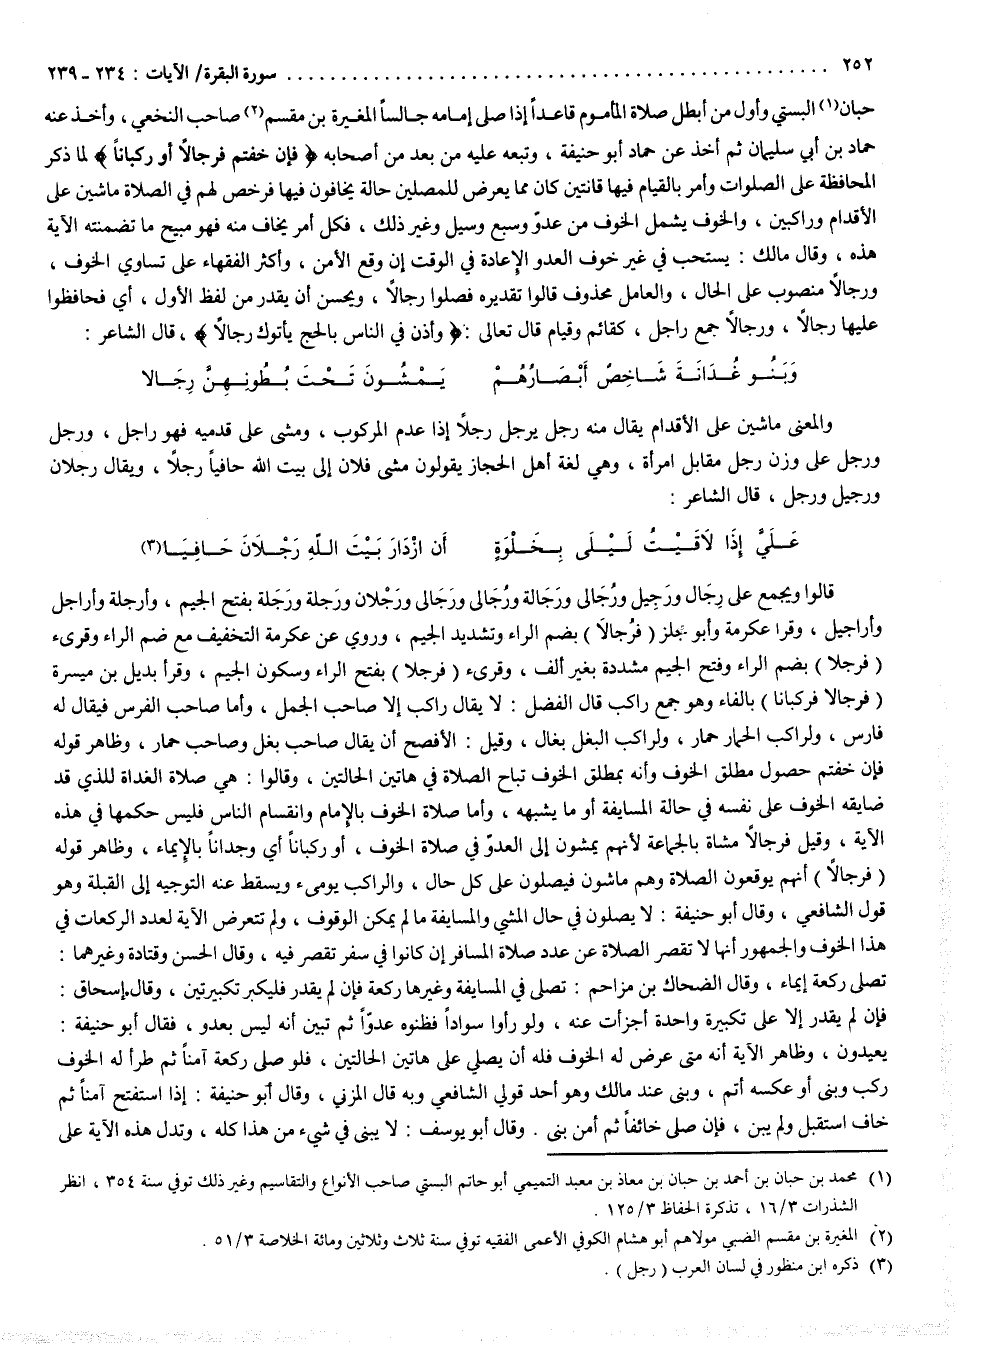 ٢٥٢ ........................................ سورة البقرة/ الآيات : ٢٣٤ - ٢٣٩
حبان(١) البستي وأول من أبطل صلاة المأموم قاعداً إذا صلى إمامه جالساً المغيرة بن مقسم(٢) صاحب النخعي ، وأخذ عنه
حماد بن أبي سليمان ثم أخذ عن حماد أبو حنيفة ، وتبعه عليه من بعد من أصحابه ﴿ فإن خفتم فرجالاً أو ركباناً ﴾ لما ذكر
المحافظة على الصلوات وأمر بالقيام فيها قانتين كان مما يعرض للمصلين حالة يخافون فيها فرخص لهم في الصلاة ماشين على
الأقدام وراكبين ، والخوف يشمل الخوف من عدوّ وسبع وسيل وغير ذلك ، فكل أمر يخاف منه فهو مبيح ما تضمنته الآية
هذه ، وقال مالك : يستحب في غير خوف العدو الإعادة في الوقت إن وقع الأمن ، وأكثر الفقهاء على تساوي الخوف ،
ورجالاً منصوب على الحال ، والعامل محذوف قالوا تقديره فصلوا رجالاً ، ويحسن أن يقدر من لفظ الأول ، أي فحافظوا
عليها رجالاً ، ورجالاً جمع راجل ، كقائم وقيام قال تعالى : ﴿ وأذن في الناس بالحج يأتوك رجالاً ﴾ ، قال الشاعر :
وَبَنُــو غُـدَانَـةَ شَـاخِصٌ أَبْصَـارُهُـمْ يَـمْشُـونَ تَـحْتَ بُـطُونِـهِنَّ رِجَـالا
والمعنى ماشين على الأقدام يقال منه رجل يرجل رجلًا إذا عدم المركوب ، ومشى على قدميه فهو راجل ، ورجل
ورجل على وزن رجل مقابل امرأة ، وهي لغة أهل الحجاز يقولون مشى فلان إلى بيت الله حافياً رجلًا ، ويقال رجلان
ورجيل ورجل ، قال الشاعر :
عَـلَيَّ إِذَا لَاقَيْـتُ لَـيْلَى بِـخَلْوَةٍ أَن ازْدَارَ بَيْتَ اللَّهِ رَجْـلَانَ حَـافِيَـا(٣)
قالوا ويجمع على رِجَال ورَجِيل ورُجَالى ورَجَالة ورُجَالى ورَجَالى ورَجْلان ورَجلة ورَجَلة بفتح الجيم ، وأرجلة وأراجل
وأراجيل ، وقرا عكرمة وأبو مجلز ( فرُجالَا ) بضم الراء وتشديد الجيم ، وروي عن عكرمة التخفيف مع ضم الراء وقرىء
( فرجلا ) بضم الراء وفتح الجيم مشددة بغير ألف ، وقرىء ( فرجلا ) بفتح الراء وسكون الجيم ، وقرأ بديل بن ميسرة
( فرجالا فركبانا ) بالفاء وهو جمع راكب قال الفضل : لا يقال راكب إلا صاحب الجمل ، وأما صاحب الفرس فيقال له
فارس ، ولراكب الحمار حمار ، ولراكب البغل بغال ، وقيل : الأفصح أن يقال صاحب بغل وصاحب حمار ، وظاهر قوله
فإن خفتم حصول مطلق الخوف وأنه بمطلق الخوف تباح الصلاة في هاتين الحالتين ، وقالوا : هي صلاة الغداة للذي قد
ضايقه الخوف على نفسه في حالة المسايفة أو ما يشبهه ، وأما صلاة الخوف بالإمام وانقسام الناس فليس حكمها في هذه
الآية ، وقيل فرجالاً مشاة بالجماعة لأنهم يمشون إلى العدوّ في صلاة الخوف ، أو ركباناً أي وجداناً بالإيماء ، وظاهر قوله
( فرجالاً ) أنهم يوقعون الصلاة وهم ماشون فيصلون على كل حال ، والراكب يومىء ويسقط عنه التوجيه إلى القبلة وهو
قول الشافعي ، وقال أبو حنيفة : لا يصلون في حال المشي والمسايفة ما لم يمكن الوقوف ، ولم تتعرض الآية لعدد الركعات في
هذا الخوف والجمهور أنها لا تقصر الصلاة عن عدد صلاة المسافر إن كانوا في سفر تقصر فيه ، وقال الحسن وقتادة وغيرهما :
تصلى ركعة إيماء ، وقال الضحاك بن مزاحم : تصلى في المسايفة وغيرها ركعة فإن لم يقدر فليكبر تكبيرتين ، وقال إسحاق :
فإن لم يقدر إلا على تكبيرة واحدة أجزأت عنه ، ولو رأوا سواداً فظنوه عدوّاً ثم تبين أنه ليس بعدو ، فقال أبو حنيفة :
يعيدون ، وظاهر الآية أنه متى عرض له الخوف فله أن يصلي على هاتين الحالتين ، فلو صلى ركعة آمناً ثم طرأ له الخوف
ركب وبنى أو عكسه أتم ، وبنى عند مالك وهو أحد قولي الشافعي وبه قال المزني ، وقال أبو حنيفة : إذا استفتح آمناً ثم
خاف استقبل ولم يبن ، فإن صلى خائفاً ثم أمن بنى . وقال أبو يوسف : لا يبنى في شيء من هذا كله ، وتدل هذه الآية على
(١) محمد بن حبان بن أحمد بن حبان بن معاذ بن معبد التميمي أبو حاتم البستي صاحب الأنواع والتقاسيم وغير ذلك توفي سنة ٣٥٤ ، انظر
الشذرات ١٦/٣ ، تذكرة الحفاظ ١٢٥/٣ .
(٢) المغيرة بن مقسم الضبي مولاهم أبو هشام الكوفي الأعمى الفقيه توفي سنة ثلاث وثلاثين ومائة الخلاصة ٥١/٣ .
(٣) ذكره ابن منظور في لسان العرب ( رجل ) .